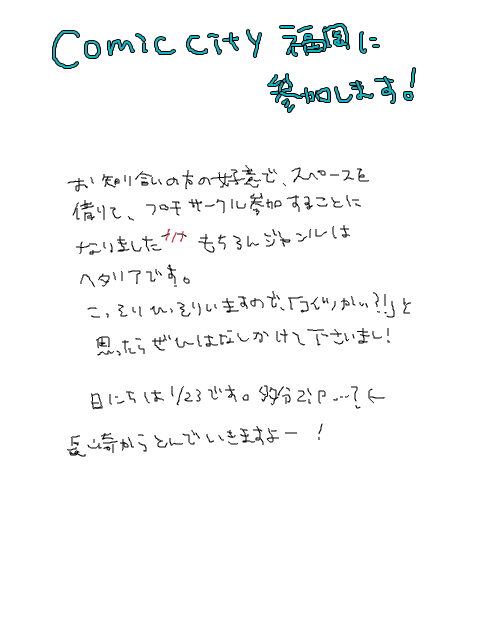 Comic city 福岡に
参加します!
お知り合いの方の好意で、スペースを
借りて、プチサークル参加することに
なりました もちろんジャンルは
ヘタリアです。
こっそりひっそりいますので、「コイツかい?!」と
思ったらぜひはなしかけて下さいまし!
日にちは1/23です。多分ネ!?…?←
長崎からとんでいきますよー!